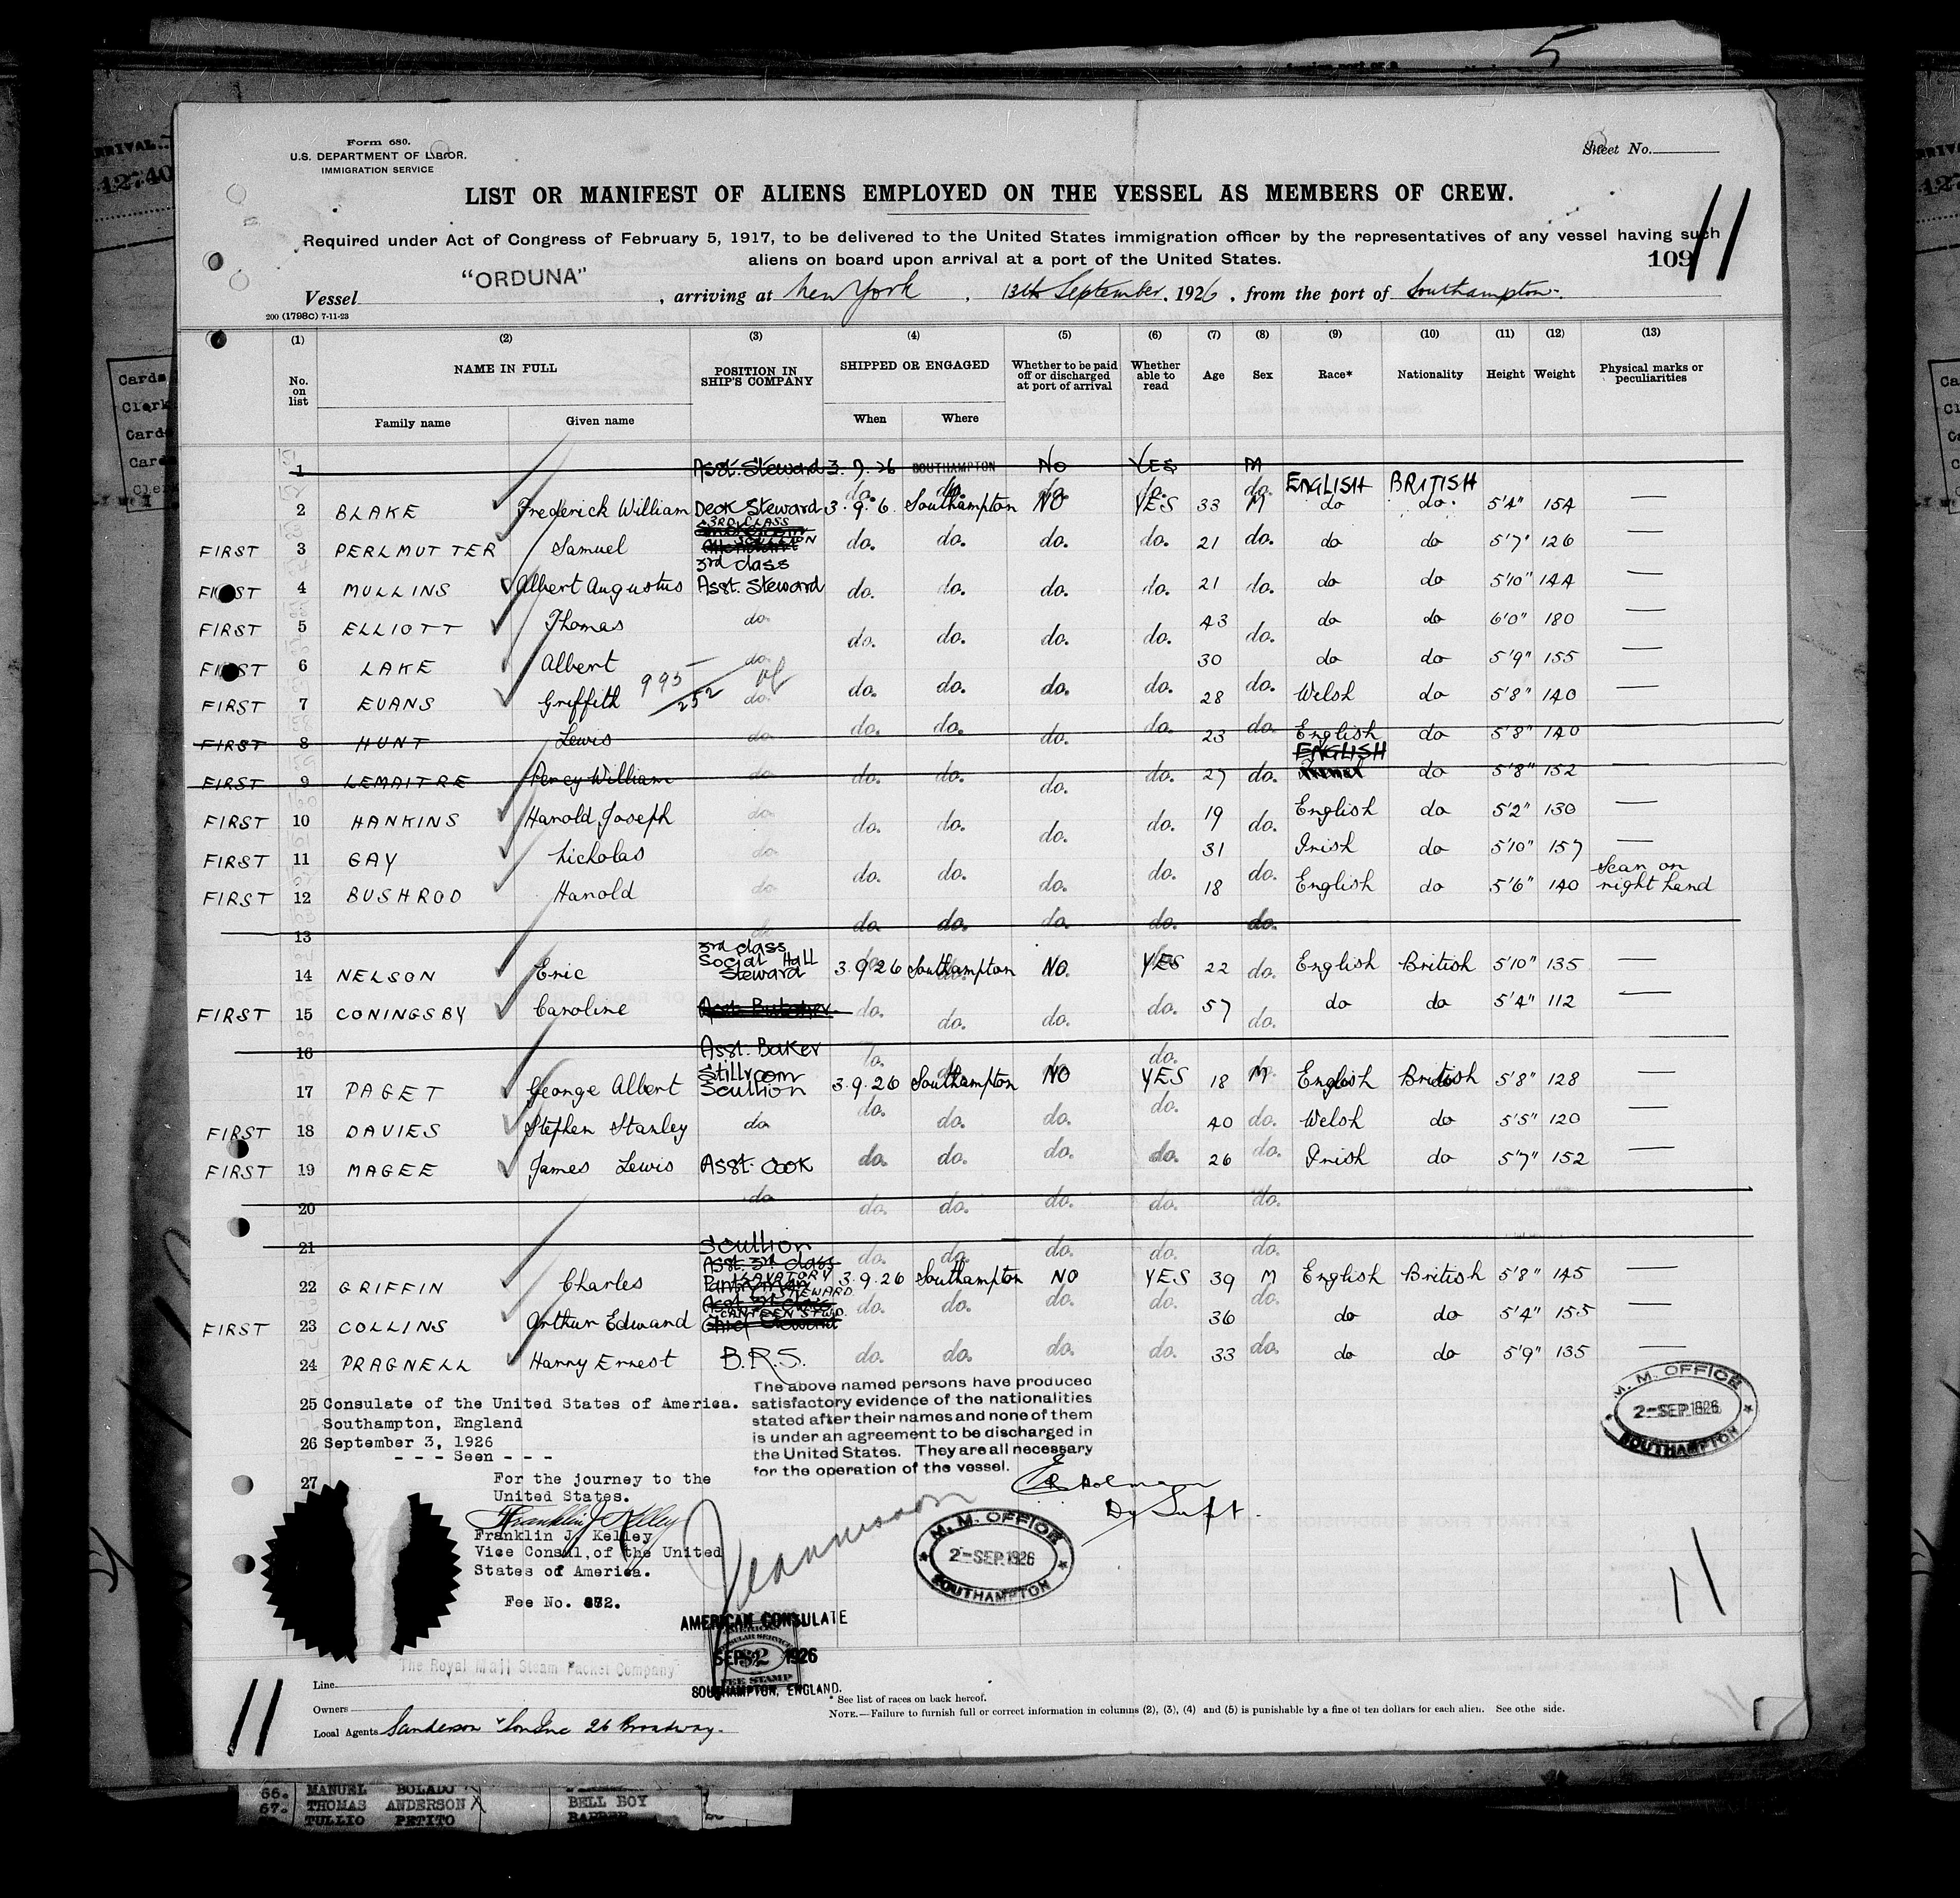 5
Form 680.
U.S. DEPARTMENT OF LABOR.
IMMIGRATION SERVICE
Sheet No.
LIST OR MANIFEST OF ALIENS EMPLOYED ON THE VESSEL AS MEMBERS OF CREW.
Required under Act of Congress of February 5, 1917, to be delivered to the United States immigration officer by the representatives of any vessel having such
aliens on board upon arrival at a port of the United States.
109 11
Vessel "ORDUNA", arriving at New York, 13th September, 1926, from the port of Southampton.
200 (1798c) 7-11-23
(1) (2) (3) (4) (5) (6) (7) (8) (9) (10) (11) (12) (13)
No. on list NAME IN FULL POSITION IN SHIP'S COMPANY SHIPPED OR ENGAGED Whether to be paid off or discharged at port of arrival Whether able to read Age Sex Race* Nationality Height Weight Physical marks or peculiarities
Family name Given name When Where
1 Asst. Steward 3.9.26 SOUTHAMPTON No YES M
do. do. do. do. do. ENGLISH BRITISH
2 BLAKE Frederick William Deck Steward 3.9.6 Southampton NO YES 33 M do do. 5'4" 154 —
FIRST 3 PERLMUTTER Samuel 3RD CLASS SCULLION do. do. do. do. 21 do. do do 5'7" 126 —
FIRST 4 MULLINS Albert Augustus 3rd class Asst. Steward do. do. do. do. 21 do. do do 5'10" 144 —
FIRST 5 ELLIOTT Thomas do. do. do. do. do. 43 do. do do 6'0" 180 —
FIRST 6 LAKE Albert do. do. do. do. do. 30 do. do do 5'9" 155 —
993
252
FIRST 7 EVANS Griffith do. do. do. do. do. 28 do. Welsh do 5'8" 140 —
FIRST 8 HUNT Lewis do. do. do. do. do. 23 do. English do 5'8" 140 —
FIRST 9 LEMAITRE Percy William do. do. do. do. do. 27 do. ENGLISH do 5'8" 152 —
FIRST 10 HANKINS Harold Joseph do. do. do. do. do. 19 do. English do 5'2" 130 —
FIRST 11 GAY Nicholas do. do. do. do. do. 31 do. Irish do 5'10" 157 —
FIRST 12 BUSHROD Harold do 18 English do 5'6" 140 Scar on right hand
13 do do. do. do. do. do.
14 NELSON Eric 3rd class Social Hall Steward 3.9.26 Southampton NO. YES 22 do. English British 5'10" 135 —
FIRST 15 CONINGSBY Caroline Asst. Butcher do. do. do. do. 57 do. do do 5'4" 112 —
16 Asst. Baker do. do. do.
17 PAGET George Albert Stillroom Scullion 3.9.26 Southampton NO YES 18 M. English British 5'8" 128 —
FIRST 18 DAVIES Stephen Stanley do do. do. do. do. 40 do. Welsh do 5'5" 120 —
FIRST 19 MAGEE James Lewis Asst. Cook do. do. do. do. 26 do. Irish do 5'7" 152 —
20 do do. do. do. do. do.
21 Scullion do. do. do. do. do.
22 GRIFFIN Charles Asst. 3rd Class Pantryman LAVATORY STEWARD 3.9.26 Southampton NO YES 39 M English British 5'8" 145 —
FIRST 23 COLLINS Arthur Edward Asst. 3rd Class Chief Steward CANTEEN STWD. do. do. do. do. 36 do. do do 5'4" 155 —
24 PRAGNELL Harry Ernest B.R.S. do. do. do. do. 33 do. do do 5'9" 135 —
25 Consulate of the United States of America.
Southampton, England
26 September 3, 1926
- - - Seen - - -
27 For the journey to the
United States.
Franklin J. Kelley
Franklin J. Kelley
Vice Consul, of the United
States of America.
Fee No. 872.
The above named persons have produced
satisfactory evidence of the nationalities
stated after their names and none of them
is under an agreement to be discharged in
the United States. They are all necessary
for the operation of the vessel.
Dy Supt.
M. M. OFFICE
2-SEP.1926
SOUTHAMPTON
M. M. OFFICE
2-SEP.1926
SOUTHAMPTON
11
AMERICAN CONSULATE
SEP 1926
$2
FEE STAMP
SOUTHAMPTON, ENGLAND.
Line The Royal Mail Steam Packet Company
Owners
Local Agents Sanderson & Son Inc 26 Broadway.
11
* See list of races on back hereof.
NOTE.—Failure to furnish full or correct information in columns (2), (3), (4) and (5) is punishable by a fine of ten dollars for each alien. See othe side.
66. MANUEL BOLADO
67. THOMAS ANDERSON BELL BOY
TULLIO PETITO BARBER